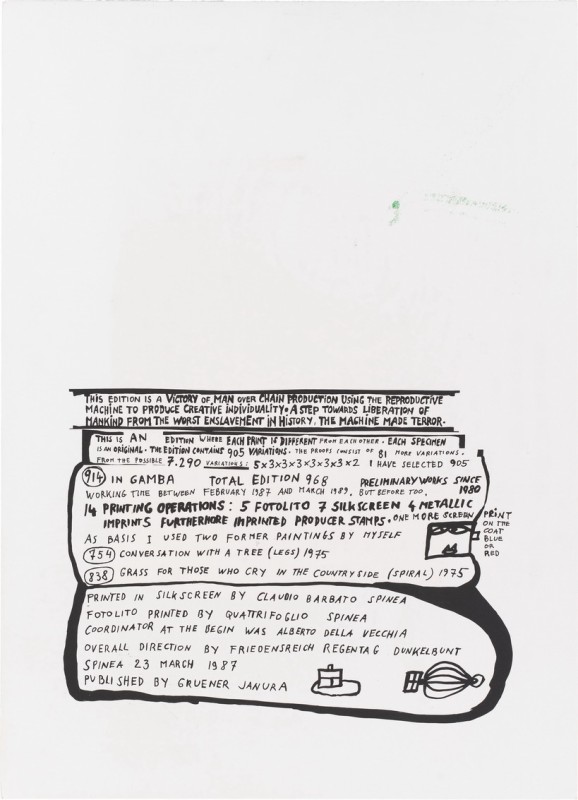 THIS EDITION IS A VICTORY OF MAN OVER CHAIN PRODUCTION USING THE REPRODUCTIVE
MACHINE TO PRODUCE CREATIVE INDIVIDUALITY. A STEP TOWARDS LIBERATION OF
MANKIND FROM THE WORST ENSLAVEMENT IN HISTORY. THE MACHINE MADE TERROR.
THIS IS AN EDITION WHERE EACH PRINT IS DIFFERENT FROM EACH OTHER. EACH SPECIMEN
IS AN ORIGINAL. THE EDITION CONTAINS 905 VARIATIONS. THE PROOFS CONSIST OF 81 MORE VARIATIONS.
FROM THE POSSIBLE 7.290 VARIATIONS: 5×3×3×3×3×3×3×2 I HAVE SELECTED 905
914 IN GAMBA TOTAL EDITION 968 PRELIMINARY WORKS SINCE 1980
WORKING TIME BETWEEN FEBRUARY 1987 AND MARCH 1989, BUT BEFORE TOO,
14 PRINTING OPERATIONS: 5 FOTOLITO 7 SILKSCREEN 4 METALLIC
IMPRINTS FURTHERMORE IMPRINTED PRODUCER STAMPS. ONE MORE SCREEN PRINT ON THE COAT BLUE OR RED
AS BASIS I USED TWO FORMER PAINTINGS BY MYSELF
754 CONVERSATION WITH A TREE (LEGS) 1975
838 GRASS FOR THOSE WHO CRY IN THE COUNTRYSIDE (SPIRAL) 1975
PRINTED IN SILKSCREEN BY CLAUDIO BARBATO SPINEA
FOTOLITO PRINTED BY QUATTRIFOGLIO SPINEA
COORDINATOR AT THE BEGIN WAS ALBERTO DELLA VECCHIA
OVERALL DIRECTION BY FRIEDENSREICH REGENTAG DUNKELBUNT
SPINEA 23 MARCH 1987
PUBLISHED BY GRUENER JANURA